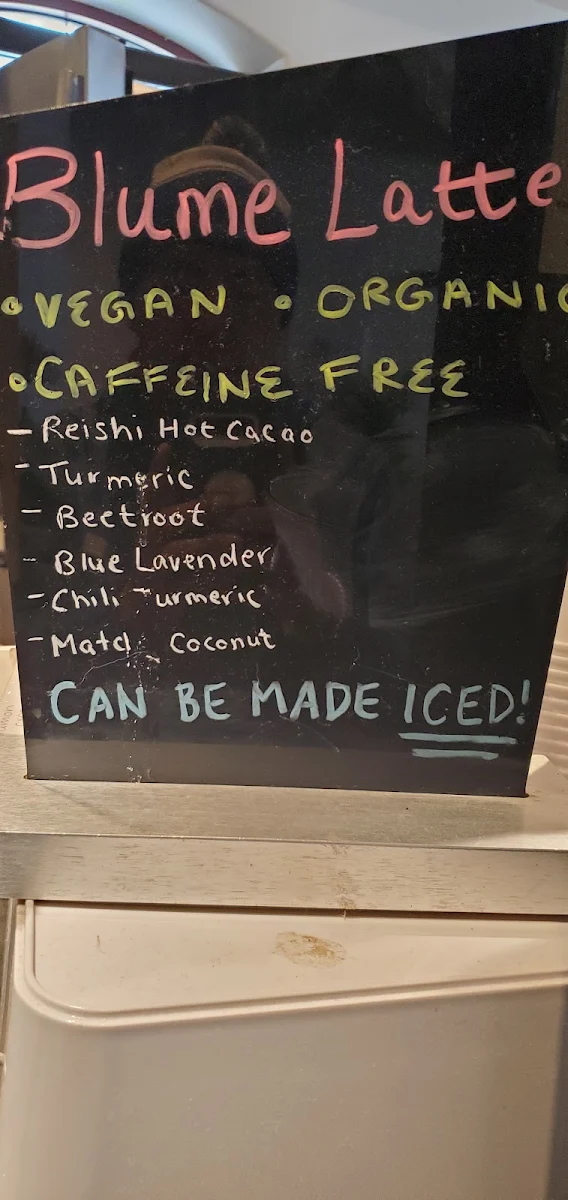 Blume Latte
• VEGAN • ORGANIC
• CAFFEINE FREE
- Reishi Hot Cacao
- Turmeric
- Beetroot
- Blue Lavender
- Chili Turmeric
- Coconut
CAN BE MADE ICED!